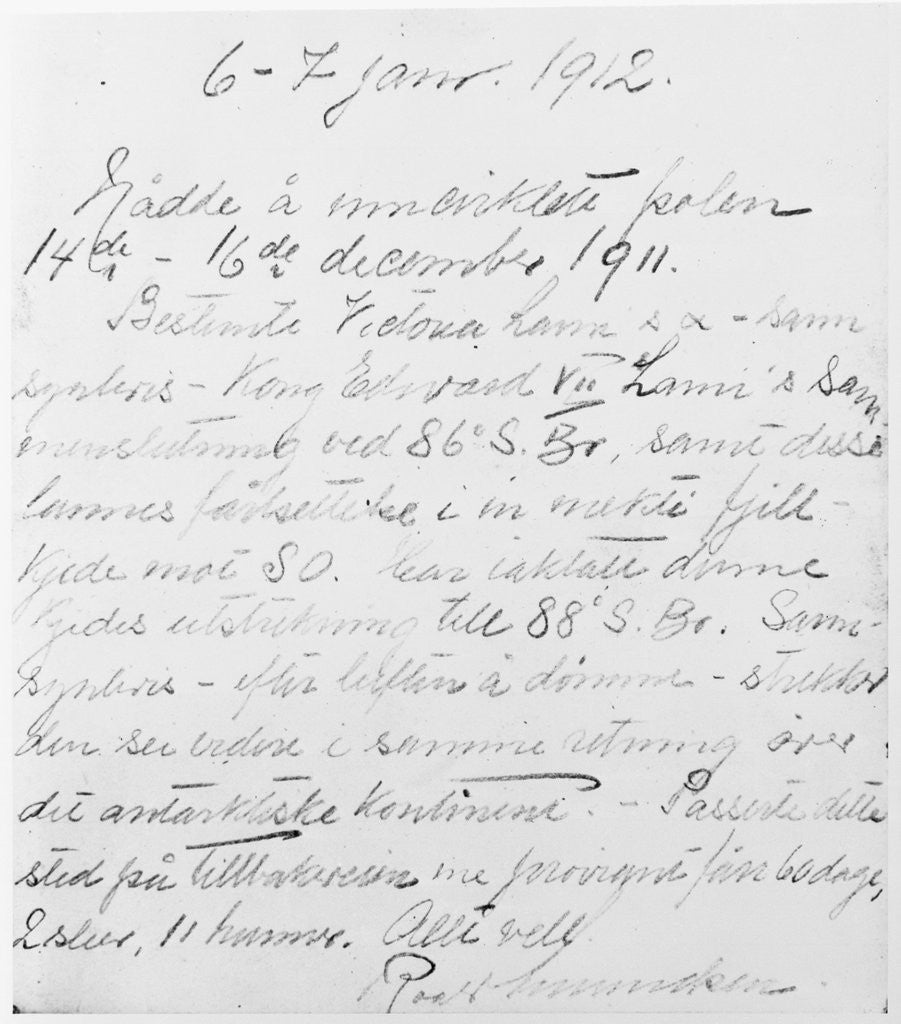 6-7 janr. 1912.
Nådde å inncirklete polen
14de - 16de december 1911.
Bestemte Victoria Lann's å - sann
synlivis - Kong Edward VII Lann's sam
menslutning ved 86° S. Br., samt disse
lannes fårtsettelse i in mekti fjell-
kjede mot SO. Har iaktatt denne
kjedes utstrekning till 88° S. Br. Sann-
synlivis - efter luften å dømme - strekker
den sei videre i samme retning over
det antarktiske kontinent. - Passerte dette
sted på tillbakereisen me proviant får 60 dage,
2 sleer, 11 hunner. Allt vell.
Roald Amundsen.